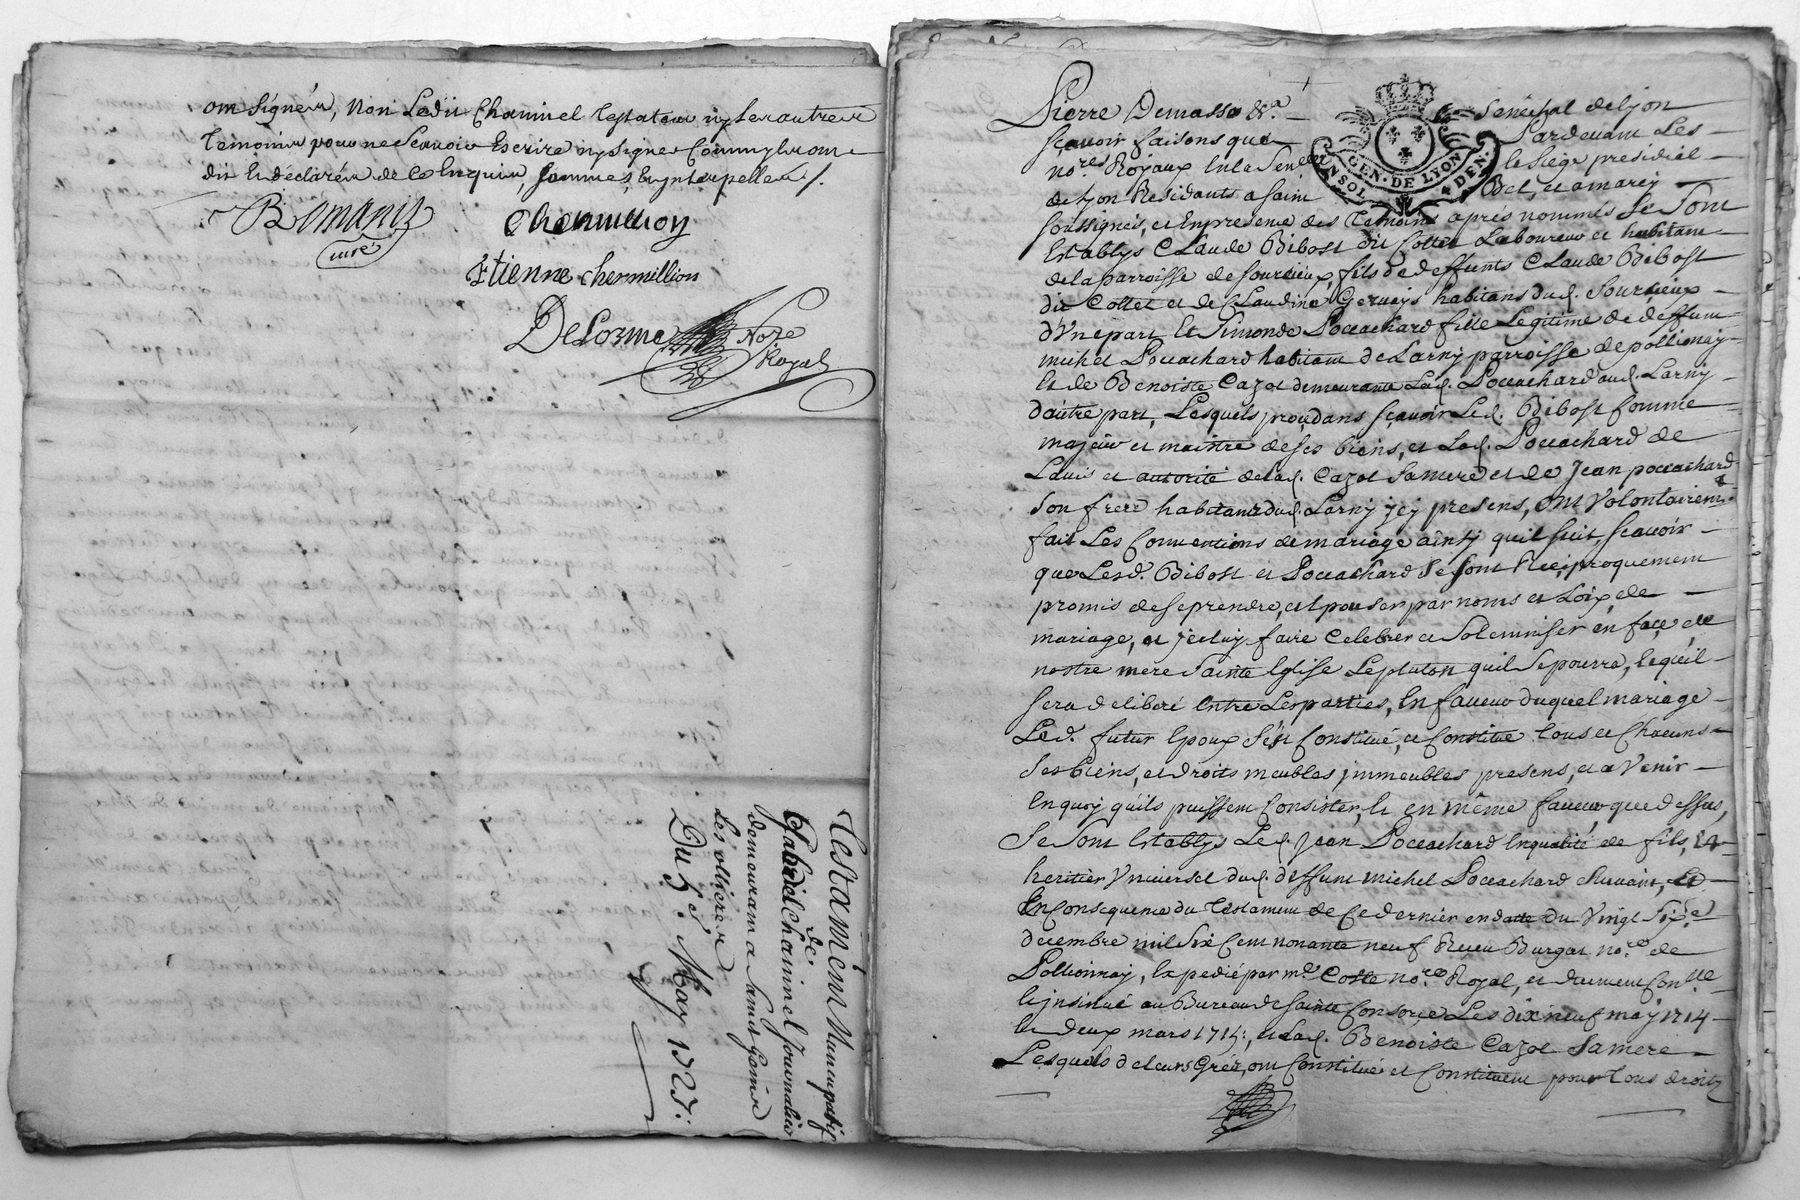 ont signéz, Non Ledit Chaminel Testateur ny Les autres
Temoins pour ne Scavoir Escrire ny Signer Comme ils ont
dit et déclaréz de ce Enquis, Sommes, et Interpellez /.
Romanis
curé
Chermillion
Etienne chermillion
DeLorme No.re
Royal
Testament Nuncupatif
de
Chaminel Journalier
demeurant a
Les ollieres
Du 5.e May 1723.
Pierre Demasso &.a
Senechal de Lyon
sçavoir faisons que
Pardevant Les
no.res Royaux En la Sen.ée et
le Siege presidial
de Lyon Residants a Saint
Bel, et amarcy
soussignés, et En presence des Temoins aprés nommés Se Sont
Establys Claude Bibost dit Collet Laboureur et habitant
de la parroisse de Sourcieux, fils de deffunts Claude Bibost
dit Collet et de Claudine Gervays habitans dud. Sourcieux
d'Vne part, Et Simonde Poccachard fille Legitime de deffunt
michel Poccachard habitant de Larny parroisse de pollionay
Et de Benoiste Cazot demeurante Lad. Poccachard aud. Larny
d'autre part, Lesquels procedans sçavoir Led. Bibost comme
majeur et maistre de ses biens, et Lad. Poccachard de
L'avis et autorité de lad. Cazot Sa mere et de Jean poccachard
son frere habitant dud. Larny jcy presens, ont Volontairem.t
fait Les Conventions de mariage ainsy quil suit, scavoir
que Lesd. Bibost et Poccachard Se sont Reciproquement
promis de se prendre, et Epouser par noms et Loix, de
mariage, et jceluy faire Celebrer et Solemniser en face de
nostre mere Sainte Eglise Le plutost quil Se pourra, Et qu'il
sera deliberé Entre Les parties, En faveur duquel mariage
Led. futur Epoux S'est Constitué, et Constitue Tous et Chacuns
Ses biens, et droits meubles jmmeubles presens, et a Venir
En quoy qu'ils puissent Consister, Et en même faveur, que dessus,
Se Sont Establys Led. Jean Poccachard En qualité de fils, Et
heritier Vniversel dud. deffunt michel Poccachard Suivant, Et
En Consequence du Testament de Ce dernier en datte du Vingt Six.e
decembre mil Six Cent nonante neuf Receu Burgat no.re de
Pollionnay, Expedié par m.e Coste no.re Royal, et duement Con.llé
Et jnsinué au Bureau de Sainte Consorce Les dix neuf may 1714
Et deux mars 1715:, et Lad. Benoiste Cazot Sa mere
Lesquels de leurs Grés, ont Constitué et Constituent pour tous droits
GEN. DE LYON
4 DEN.